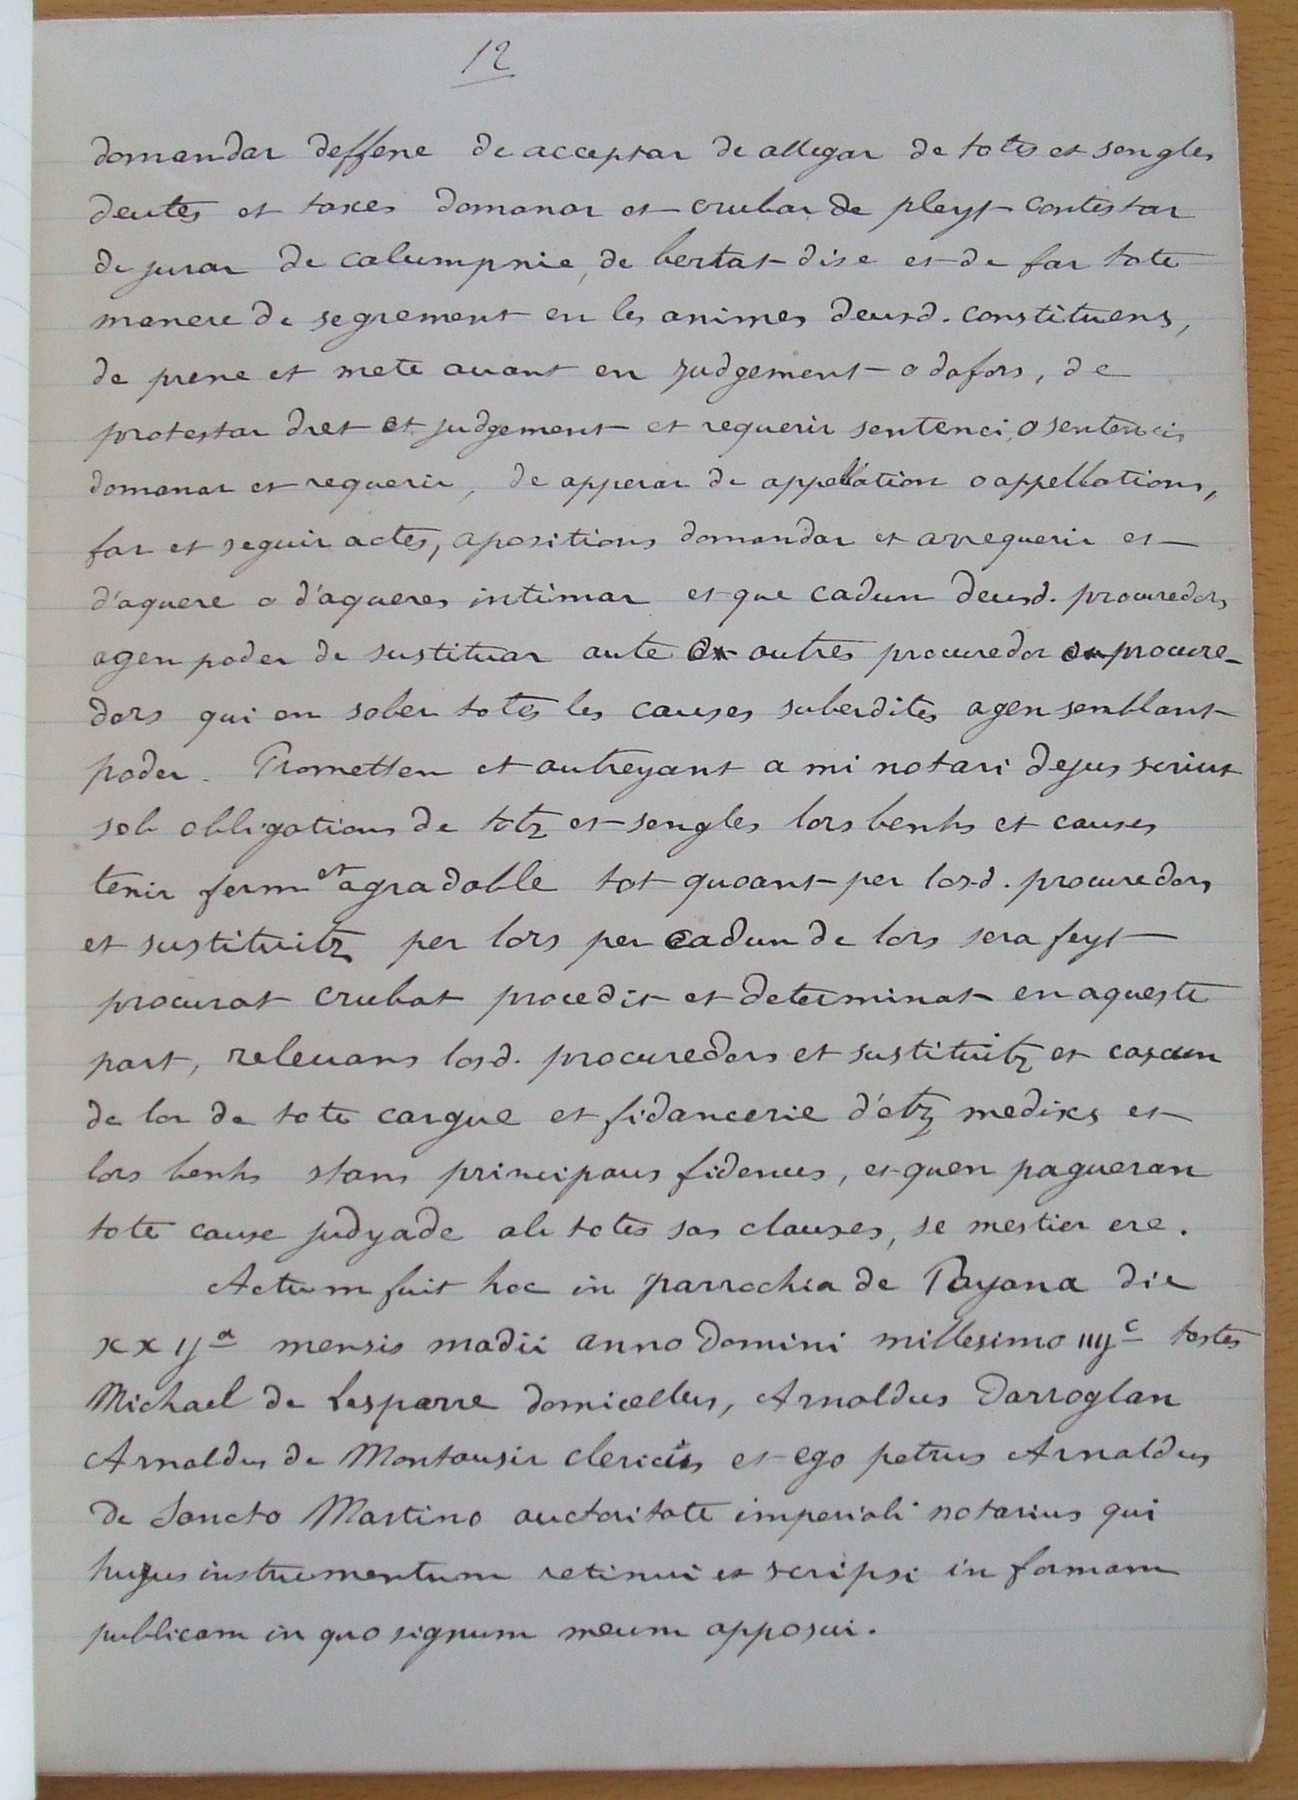 12
domandar deffene de acceptar de allegar de totes et sengles
deutes et taxes domanar et crubar de pleyt contestar
de jurar de calumpnie, de bertat dise et de far tote
manere de segrement en les animes deusd. constituens,
de prene et mete avant en judgement o dafors, de
protestar dret et judgement et requerir sentenci, o sentencis
domanar et requerir, de apperar de appellation o appellations,
far et seguir actes, apositions domandar et arrequerir et
d'aquere o d'aqueres intimar et que cadun deusd. procuredors
agen poder de sustituar aute o autres procuredor o procure-
dors qui en sober totes les causes suberdites agen semblant
poder. Prometten et autreyant a mi notari dejus scriut
sob obligations de totz et sengles lors benhs et causes
tenir ferm et agradable tot quoant per losd. procuredors
et sustituitz per lors per cadun de lors sera feyt
procurat crubat procedit et determinat en aqueste
part, relevans losd. procuredors et sustituitz et caxun
de lor de tote cargue et fidancerie d'etz medixs et
lors benhs stans principaus fidences, et quen pagueran
tote cause judyade ab totes sas clauses, se mestier ere.
Actum fuit hoc in parrochia de Tayana die
xx ijª mensis madii anno Domini millesimo iiijᶜ testes
Michael de Lesparre domicellus, Arnaldus Darroglan
Arnaldus de Montausir clericis et ego petrus Arnaldus
de Sancto Martino auctoritate imperiali notarius qui
hujus instrumentum retinui et scripsi in formam
publicam in quo signum meum apposui.